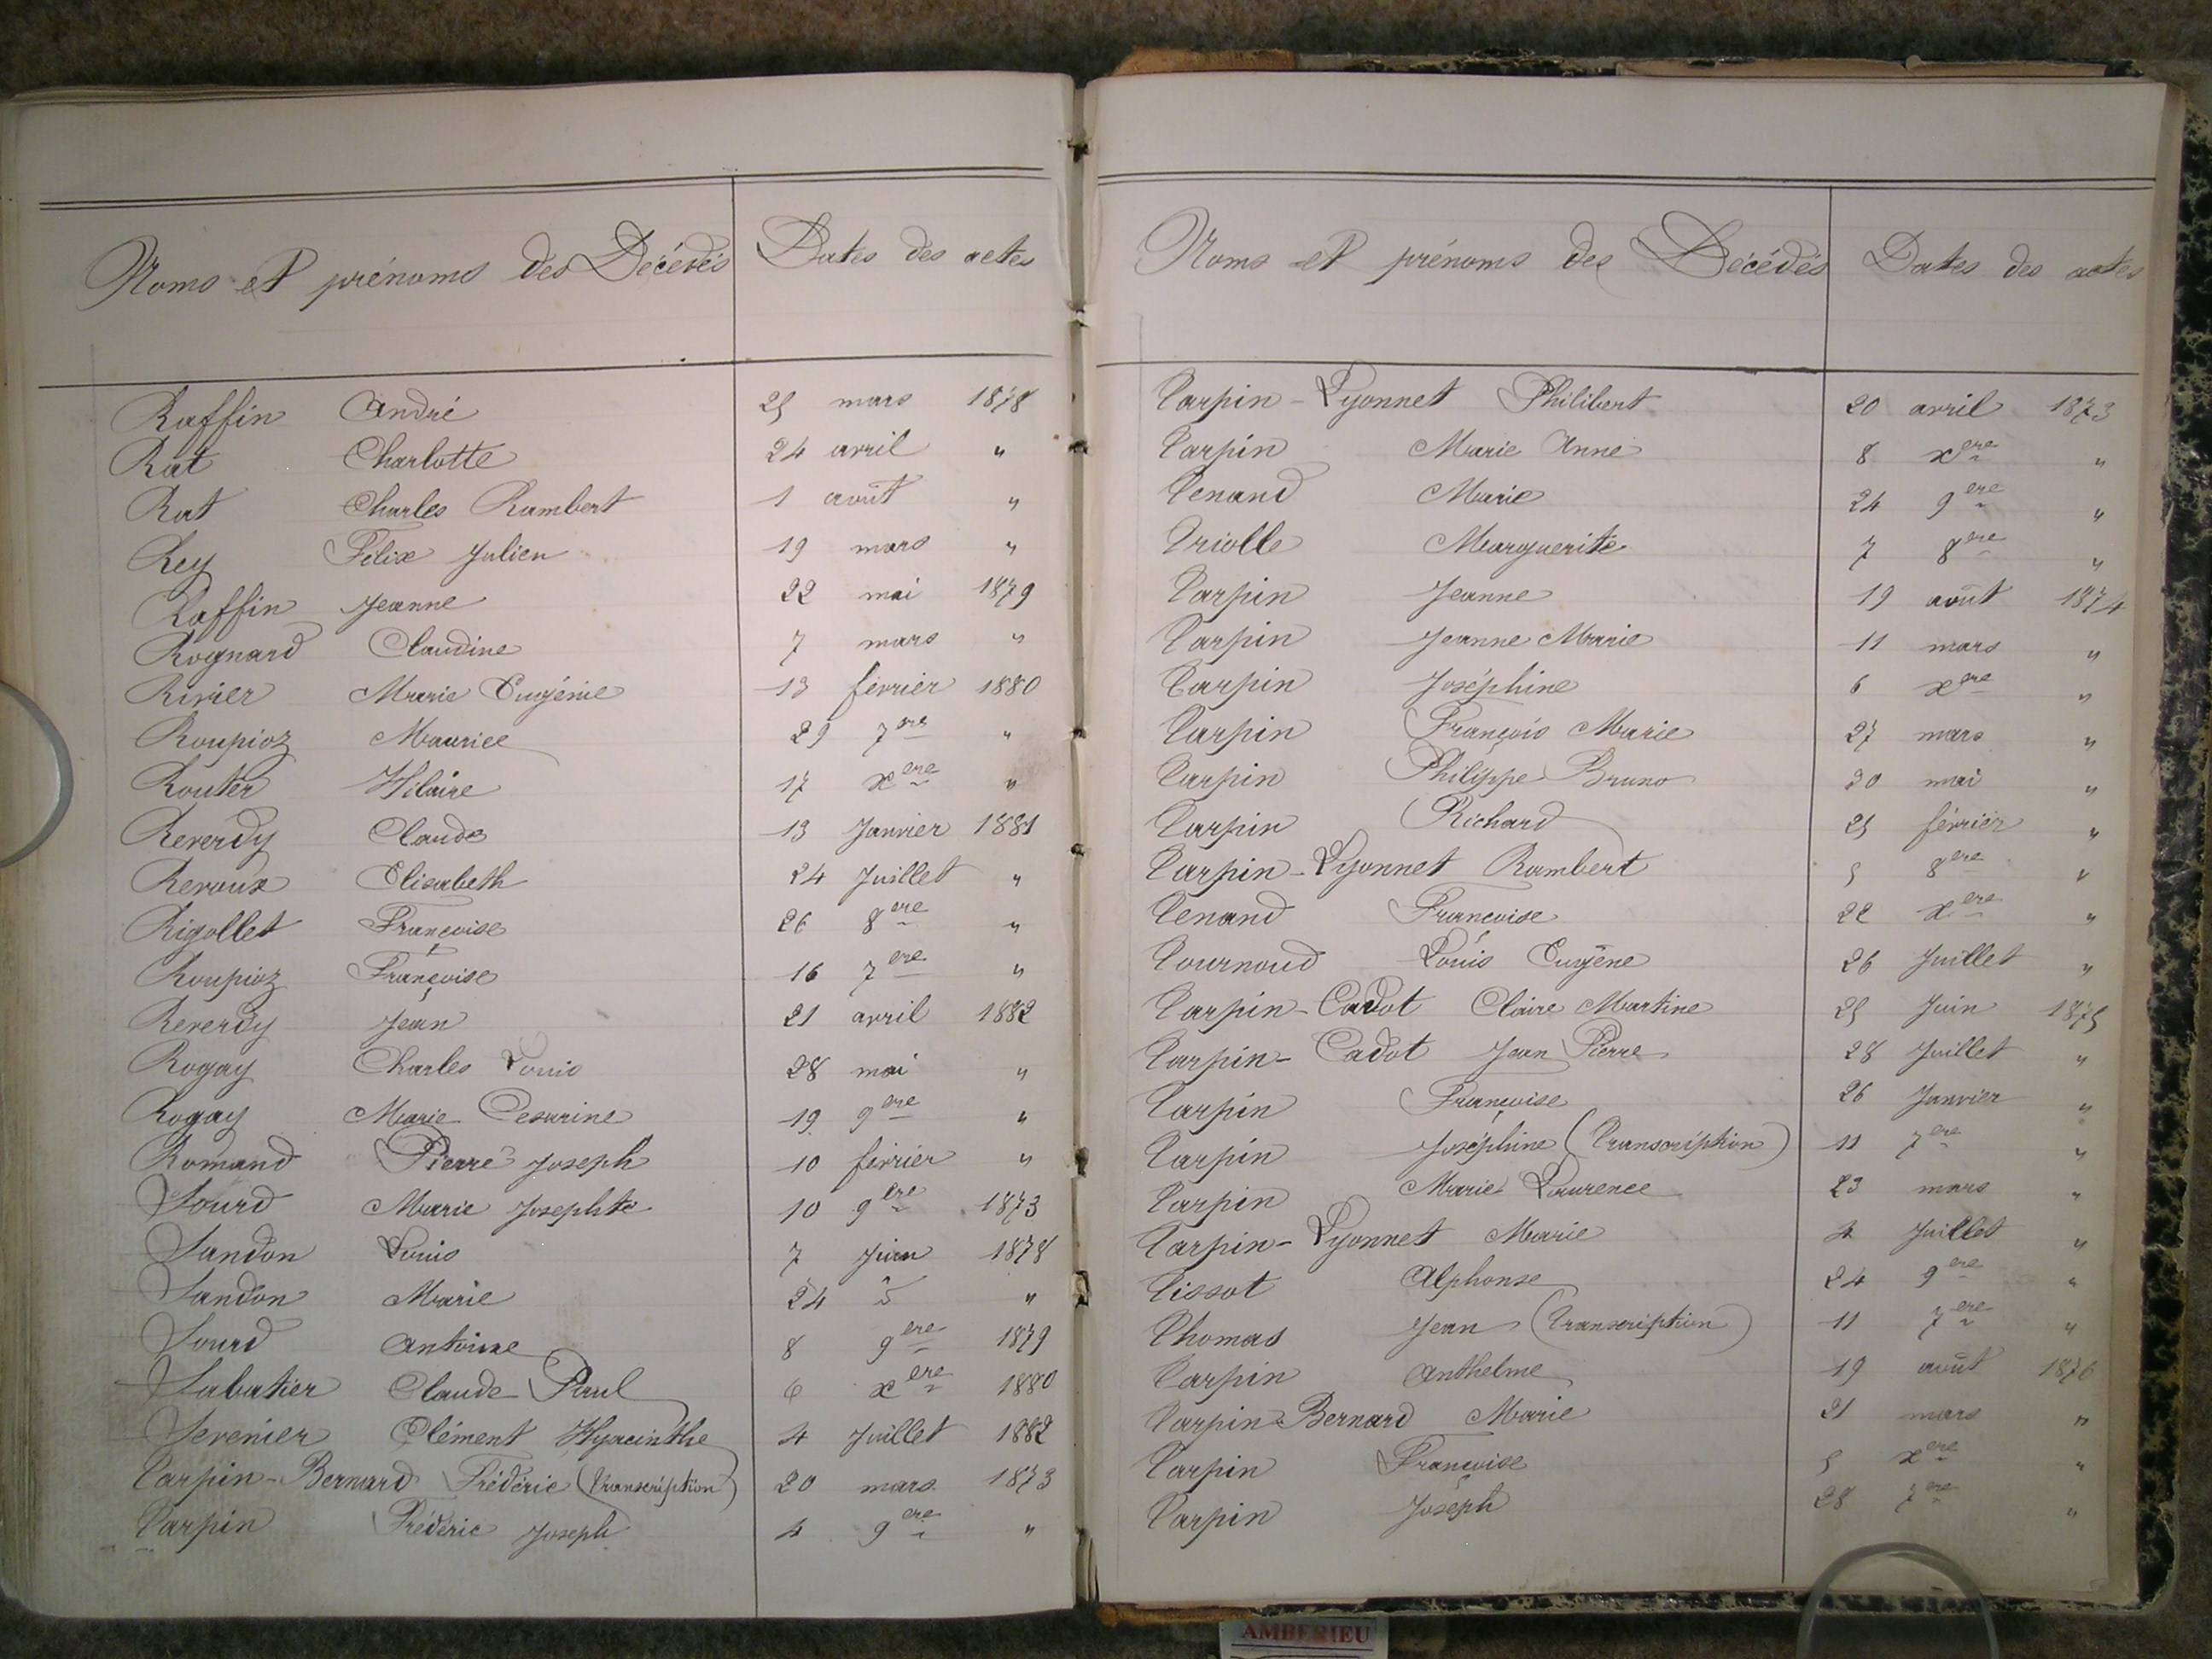 Noms et prénoms des Décédés Dates des actes
Raffin André 25 mars 1878
Rat Charlotte 24 avril "
Rat Charles Rambert 1 août "
Rey Félix Julien 19 mars "
Raffin Jeanne 22 mai 1879
Rognard Claudine 7 mars "
Rivier Marie Eugénie 13 février 1880
Roupioz Maurice 29 7ere "
Router Hilaire 17 xere "
Reverdy Claude 13 Janvier 1881
Reroux Elisabeth 24 Juillet "
Rigollet Françoise 26 8ere "
Roupioz Françoise 16 7ere "
Reverdy Jean 21 avril 1882
Rogay Charles Louis 28 mai "
Rogay Marie Césarine 19 9ere "
Romand Pierre Joseph 10 février "
Sourd Marie Josephte 10 9ere 1873
Sandon Louis 7 Juin 1878
Sandon Marie 24 "
Sourd Antoine 8 9ere 1879
Sabatier Claude Paul 6 xere 1880
Sevenier Clément Hyacinthe 4 Juillet 1882
Tarpin-Bernard Frédéric (Transcription) 20 mars 1873
Tarpin Frédéric Joseph 4 9ere "
Noms et prénoms des Décédés Dates des actes
Tarpin-Lyonnet Philibert 20 avril 1873
Tarpin Marie Anne 8 xere "
Tenand Marie 24 9ere "
Triolle Marguerite 7 8ere "
Tarpin Jeanne 19 août 1874
Tarpin Jeanne Marie 11 mars "
Tarpin Joséphine 6 xere "
Tarpin François Marie 27 mars "
Tarpin Philippe Bruno 30 mai "
Tarpin Richard 25 février "
Tarpin-Lyonnet Rambert 5 8ere "
Tenand Françoise 22 xere "
Tournoud Louis Eugène 26 Juillet "
Tarpin-Cadot Claire Martine 25 Juin 1875
Tarpin-Cadot Jean Pierre 28 Juillet "
Tarpin Françoise 26 Janvier "
Tarpin Joséphine (Transcription) 11 7ere "
Tarpin Marie Laurence 23 mars "
Tarpin-Lyonnet Marie 4 Juillet "
Tissot Alphonse 24 9ere "
Thomas Jean (Transcription) 11 7ere "
Tarpin Anthelme 19 août 1876
Tarpin-Bernard Marie 21 mars "
Tarpin Françoise 5 xere "
Tarpin Joseph 28 7ere "
AMBERIEU